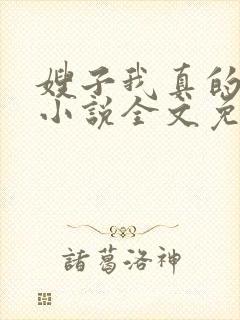 嫂子我真的
小说全文免
諸葛洛神